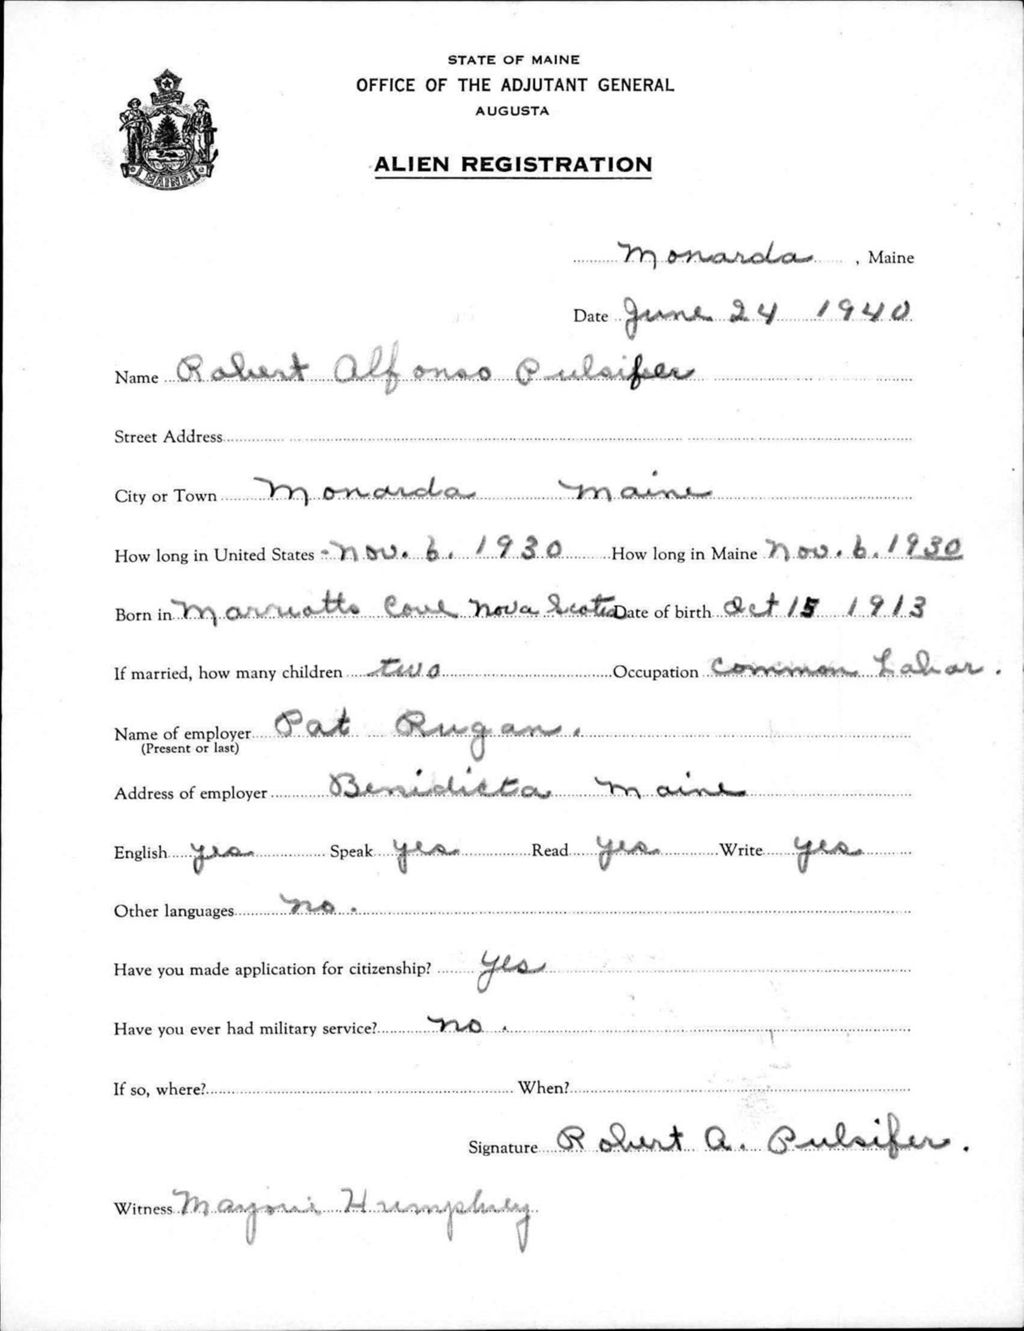 STATE OF MAINE
OFFICE OF THE ADJUTANT GENERAL
AUGUSTA
ALIEN REGISTRATION
MAINE
Monarda, Maine
Date June 24 1940
Name Robert Alfonso Pulsifer
Street Address
City or Town Monarda Maine
How long in United States - Nov. 6. 1930 How long in Maine Nov. 6. 1930
Born in Marriotts Cove Nova Scotia Date of birth Oct 15 1913
If married, how many children two Occupation Common Labor.
Name of employer Pat Rugan.
(Present or last)
Address of employer Benidicta Maine
English yes Speak yes Read yes Write yes
Other languages no.
Have you made application for citizenship? yes
Have you ever had military service? no.
If so, where? When?
Signature Robert A. Pulsifer.
Witness Marjorie Humphrey